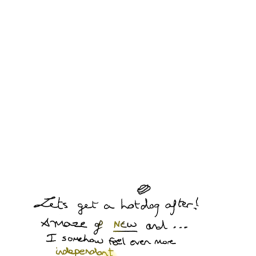 Let's get a hotdog after!
A maze of New and ...
I somehow feel even more
independant